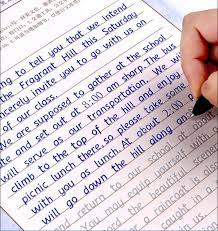 ng to tell you that we intend
the Fragrant Hill this Saturday
cerely invite you to go with us on
of our class.
We are supposed to gather at the school
te and set out at 8:00 am sharp. The bus
will serve as our transportation. We will
climb to the top of the hill and enjoy
picnic lunch there, so please take some
with you as lunch. At about 2:00
will go down the hill along an
and return to our school at about
You may equip yourself
the beautiful
or a raincoat is
caught in a